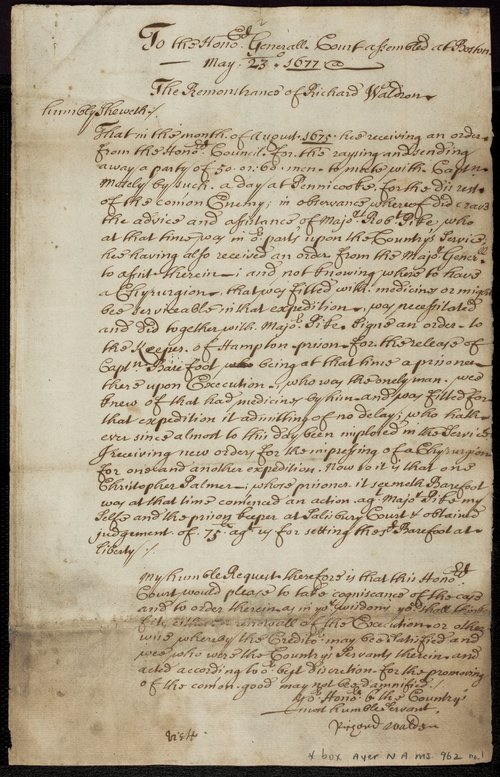 To the Honoed Generall Court assembled at Boston
May. 23. 1677
The Remonstrance of Richard Waldron
humbly sheweth/
That in the month of August. 1675 hee receiving an order
from the Honod Councill for the raysing and sending
away a party of 50. or. 60. men. to meete with Captn
Mosely by such. a day at Pennicooke, for the disrest
of the comon Enemy; in observance whereof did crave
the advice and assistance of Major Robt Pike, who
at that time was in or parts upon the Countrys Service,
hee having also received an order from the Major Generll
to assist therein; and not knowing where to have
a Chyrurgion, that was fitted with medicine or might
bee serviceable in that expedition, was necessitated
and did together with Majr Pike signe an order to
the Keeper of Hampton prison for the release of
Captn Barefoot who being at that time a prisoner
there upon Execution, who was the onely man. wee
knew of that had medicines by him and was fitted for
that expedition it admitting of no delay; who hath
ever since almost to this day been imployed in the Service
receiving new orders for the impressing of a Chyrurgion
for one and another expedition. Now so it is that one
Christopher Palmer, whose prisoner it seemeth Barefoot
was at that time comenced an action agt Majr Pike my
Selfe and the prison keeper at Salisbury Court & obtained
judgement of. 75 agt us for setting the sd Barefoot at
liberty/:
My humble Request therefore is that this Honoed
Court would please to take cognisance of the case
and to order therein as in yor wisdoms you shall thinke
fit, either a renewall of the Execution or other
wise whereby the Creditor may bee satisfied and
wee who were the Countrys Servants therein and
acted according to or best discretion for the promoving
of the comon good may not be damnified.
Yor Honors & the Countrys
most humble Servant.
Richard Waldron
4 box Ayer N A ms. 962 no. 1